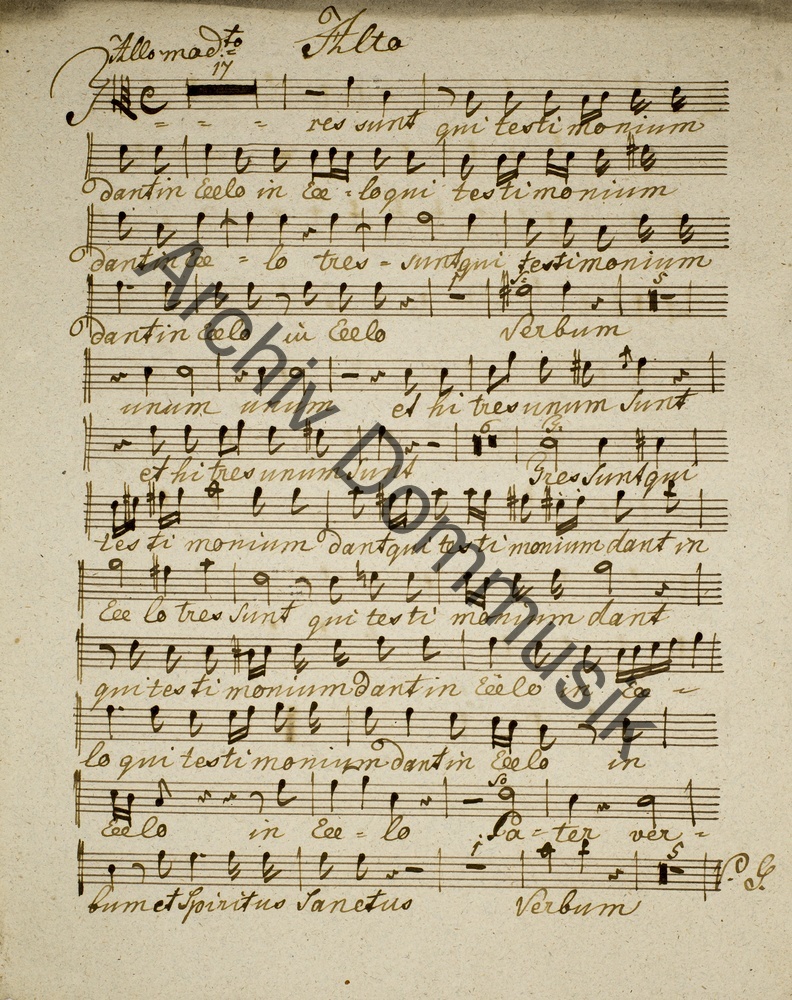 Allo mod.to Alto
17
Tres sunt qui testi monium
dant in Cœlo in Cœ - lo qui testimonium
dant in Cœ - lo tres - sunt qui testimonium
1 So: 5
dant in Cœlo in Cœlo Verbum
unum unum et hi tres unum Sunt
6
et hi tres unum Sunt Tres Sunt qui
tes ti monium dant qui tes ti monium dant in
Cœ lo tres Sunt qui tes ti monium dant
qui tes ti monium dant in Cœlo in Cœ -
lo qui testi monium dant in Cœlo in
So
Cœlo in Cœ - lo Pa - ter ver -
1 5 V. S.
bum et Spiritus Sanctus Verbum
Archiv Dommusik